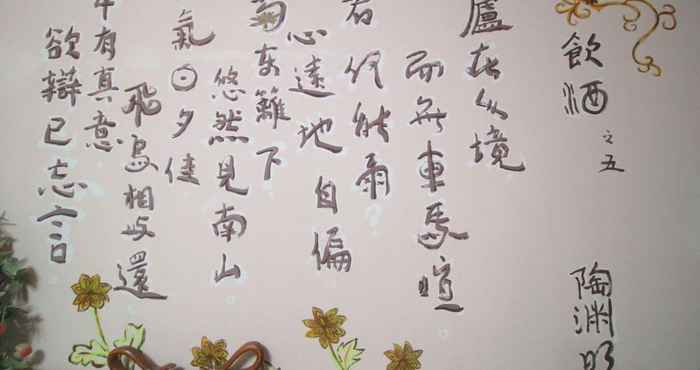 飲酒 之五
陶渊明
廬在人境
而無車馬喧
君何能爾
心遠地自偏
菊东籬下
悠然見南山
氣日夕佳
飛鳥相與還
中有真意
欲辯已忘言